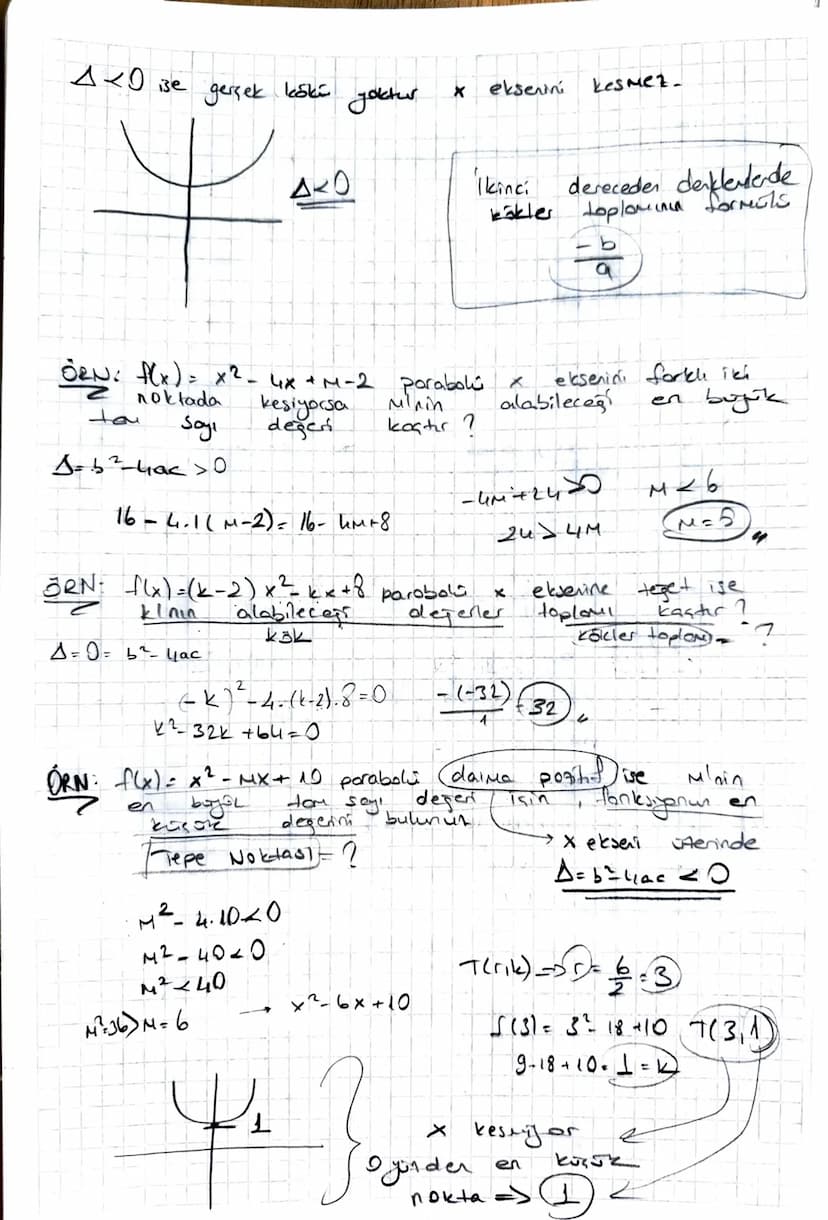 Δ<0 ise gerçek kökü yoktur x eksenini kesmez.
Δ<0
İkinci dereceden denklemlerde
kökler toplamının formülü
-b
a
ÖRN: f(x) = x² - 4x + M-2 parabolü x eksenini farklı iki
noktada kesiyorsa M'nin alabileceği en büyük
tam sayı değeri kaçtır?
Δ= b²-4ac > 0
16 - 4.1(M-2) = 16 - 4M+8
-4M+24>0
24 > 4M
M < 6
M = 5
ÖRN: f(x)=(k-2)x²-kx+8 parabolü x eksenine teğet ise
k'nın alabileceği değerler toplamı kaçtır?
kök
kökler toplamı = ?
Δ=0= b²-4ac
(-k)²-4.(k-2).8=0
k²-32k+64=0
-(-32)
1
= 32
ÖRN: f(x)= x²-Mx+10 parabolü daima pozitif ise M'nin
en büyük tam sayı değeri için, fonksiyonun en
küçük değerini bulunuz
→ x ekseni üzerinde
Tepe Noktası = ?
Δ=b²-4ac < 0
M²-4.10<0
M²-40<0
M²<40
M²=36> M=6 → x²-6x+10
T(r,k) => r = 6/2 = 3
f(3) = 3²-18+10 T(3,1)
9-18+10 = 1 = k
1
x kesmiyor
O yüzden en küçük
nokta => 1